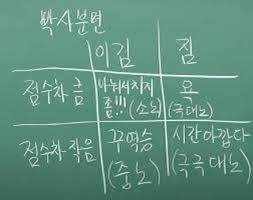 박사분면
이김 짐
점수차 큼 나눠서치지 욕
좀!!! (소노) (극대노)
점수차 작음 꾸역승 시간아깝다
(중노) (극극대노)